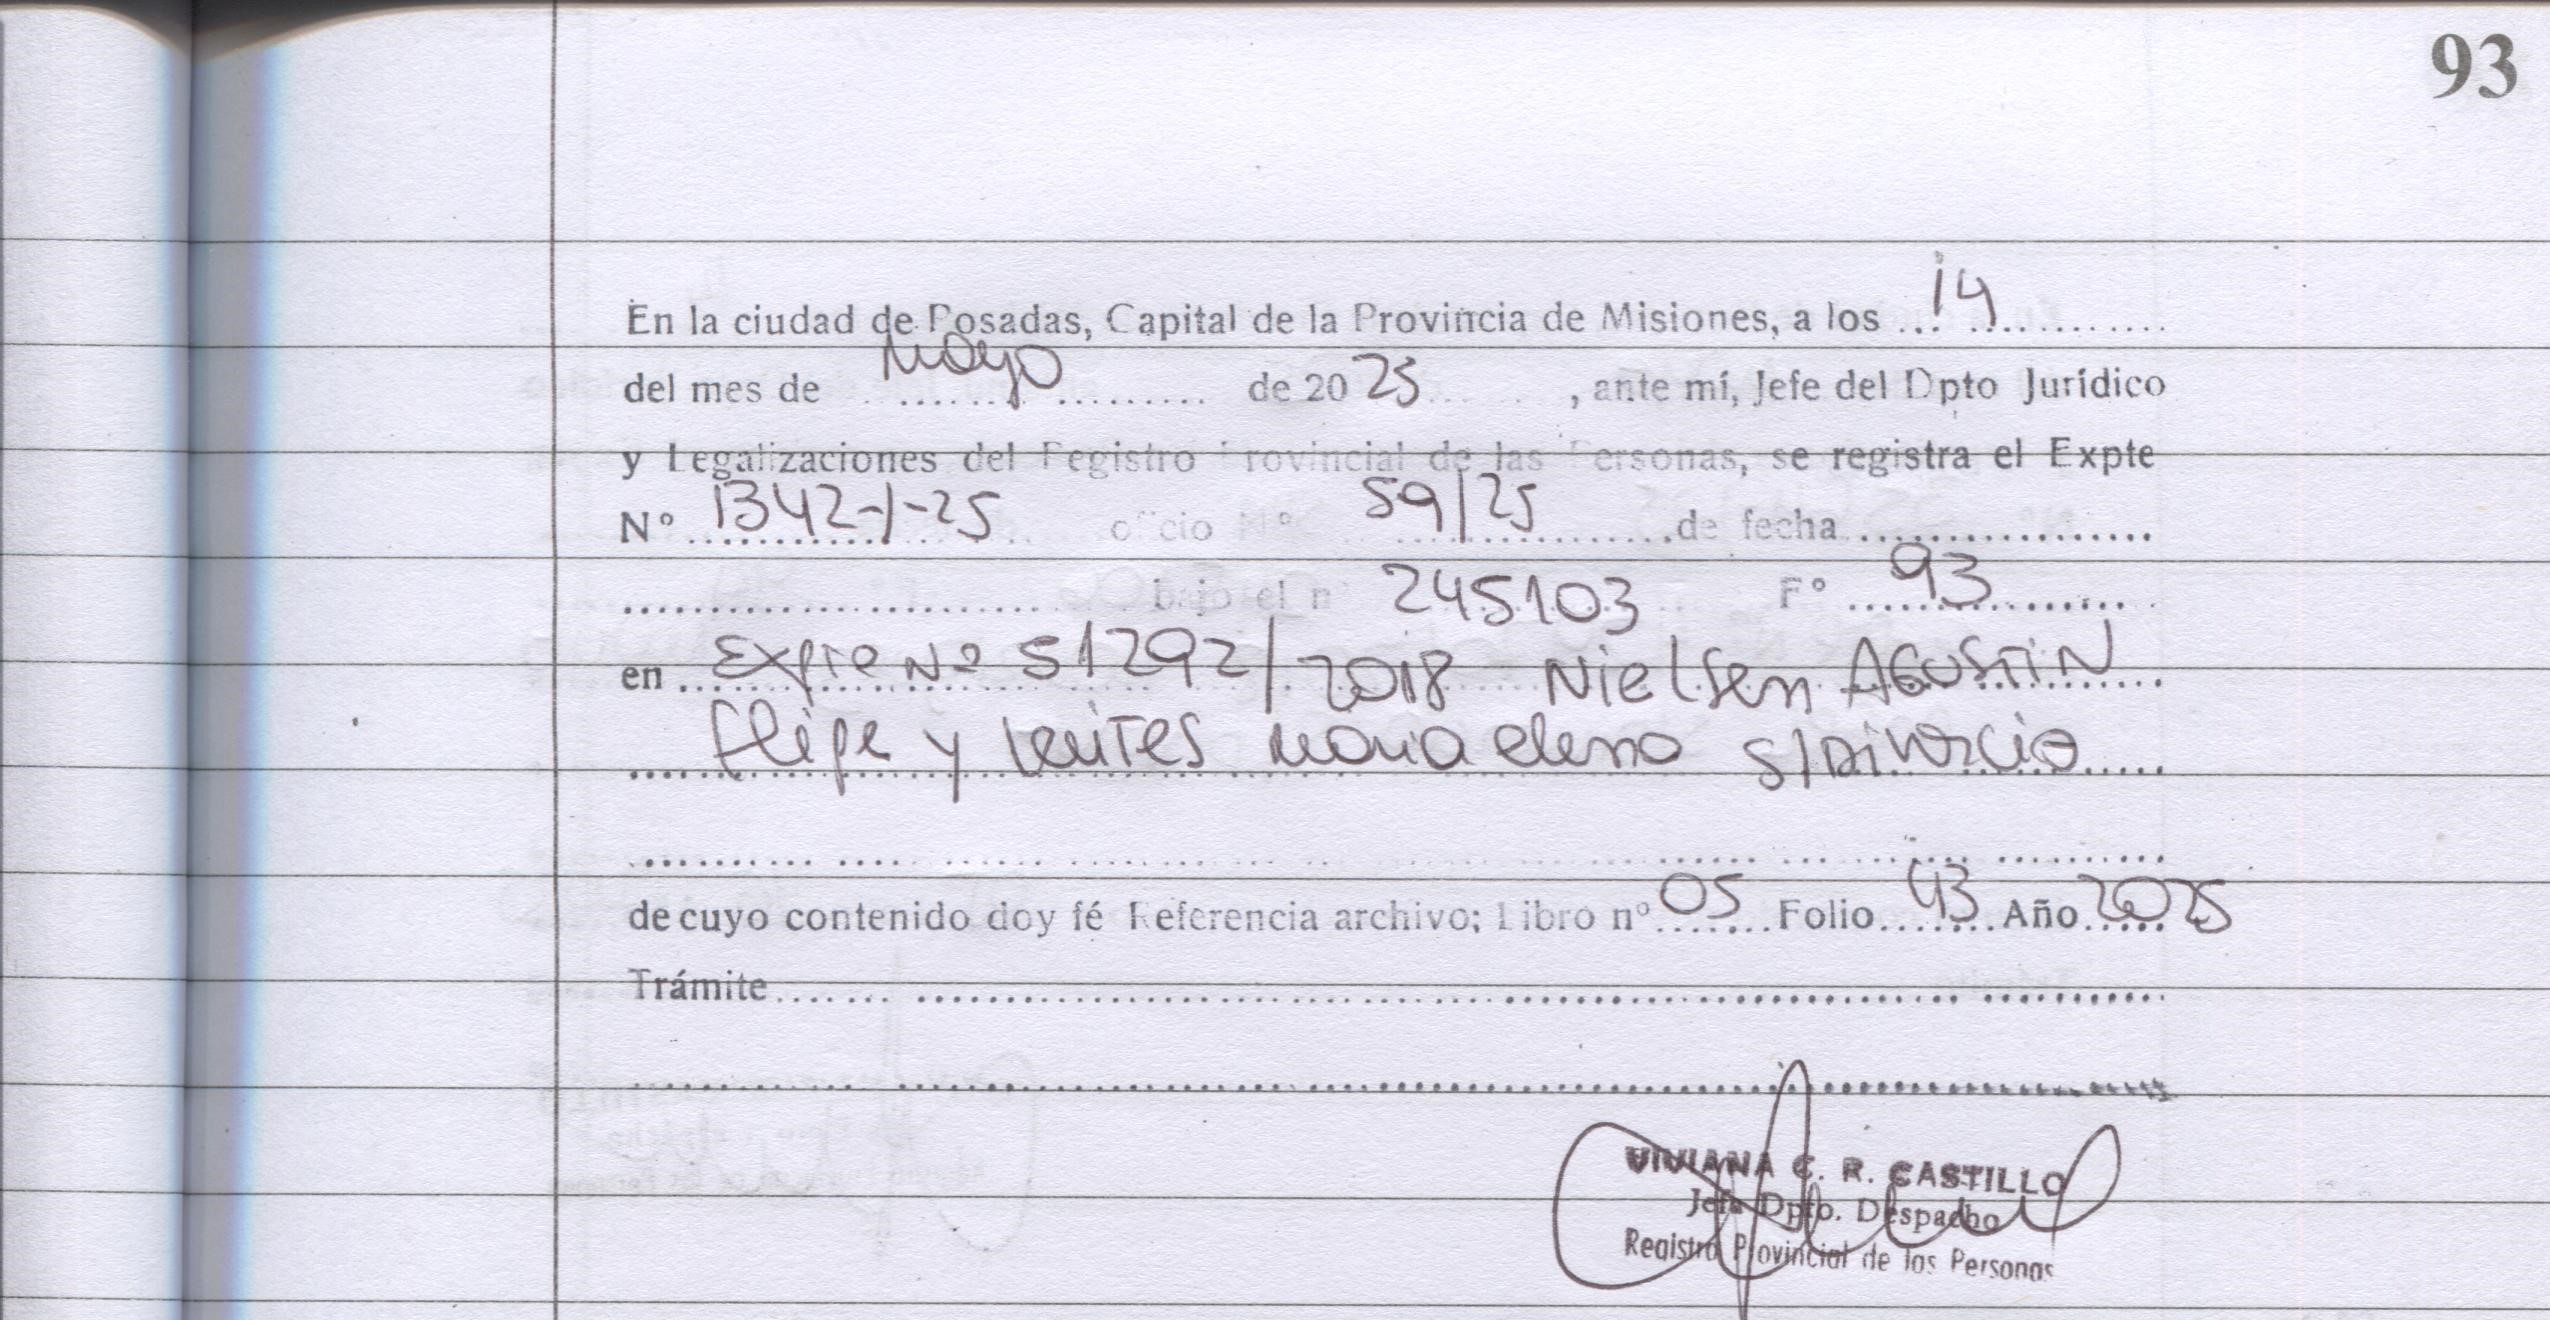 93
En la ciudad de Posadas, Capital de la Provincia de Misiones, a los 14
del mes de mayo de 2025, ante mí, Jefe del Dpto Jurídico
y Legalizaciones del Registro Provincial de las Personas, se registra el Expte
N° 1342-1-25 oficio N° 59/25 de fecha
bajo el n° 245103 F° 93
en Expte Nº 51292/2018 Nielsen AGUSTIN
felipe y leites Maria elena s/Divorcio
de cuyo contenido doy fé Referencia archivo; Libro nº 05 Folio 93 Año 2025
Trámite
VIVIANA C. R. CASTILLO
Jefa Dpto. Despacho
Registro Provincial de las Personas